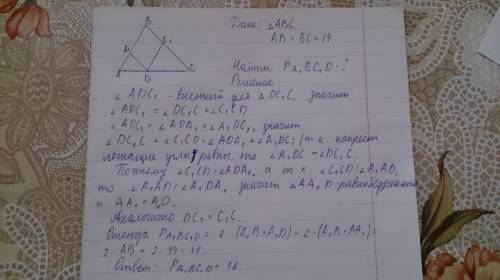 B
A₁
C₁
A
D
C
Дано: ∠ABC
AB = BC = 19
Найти: P A₁BC₁D - ?
Решение
∠ADC₁ - внешний для △DC₁C, значит
∠ADC₁ = ∠DC₁C + ∠C₁CD
∠ADC₁ = ∠ADA₁ + ∠A₁DC₁, значит
∠DC₁C + ∠C₁CD = ∠ADA₁ + ∠A₁DC₁ (т.к. накрест
лежащие углы равны, то ∠A₁DC₁ = ∠DC₁C.
Поэтому ∠C₁CD = ∠ADA₁, а т.к. ∠C₁CD = ∠A₁AD,
то ∠A₁AD = ∠A₁DA, значит △AA₁D - равнобедренный
и AA₁ = A₁D.
Аналогично DC₁ = C₁C.
Отсюда P A₁BC₁D = 2·(A₁B + A₁D) = 2·(A₁B + AA₁) =
2·AB = 2·19 = 38.
Ответ: P A₁BC₁D = 38.